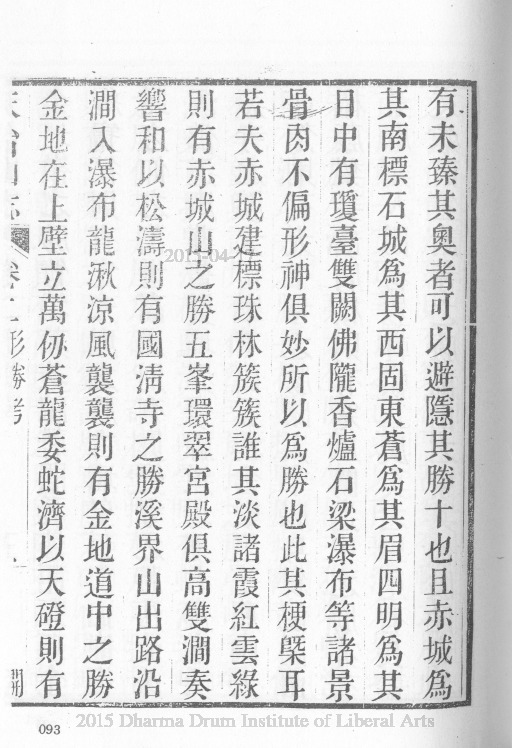 有未臻其奧者可以避隱其勝十也且赤城爲
其南標石城爲其西固東蒼爲其眉四明爲其
目中有瓊臺雙闕佛隴香爐石梁瀑布等諸景
骨肉不偏形神俱妙所以爲勝也此其梗槩耳
若夫赤城建標珠林簇簇誰其淡諸霞紅雲綠
則有赤城山之勝五峯環翠宮殿俱高雙澗奏
響和以松濤則有國淸寺之勝溪界山出路沿
澗入瀑布龍湫涼風襲襲則有金地道中之勝
金地在上壁立萬仞蒼龍委蛇濟以天磴則有
形勝考
093
2015 Dharma Drum Institute of Liberal Arts